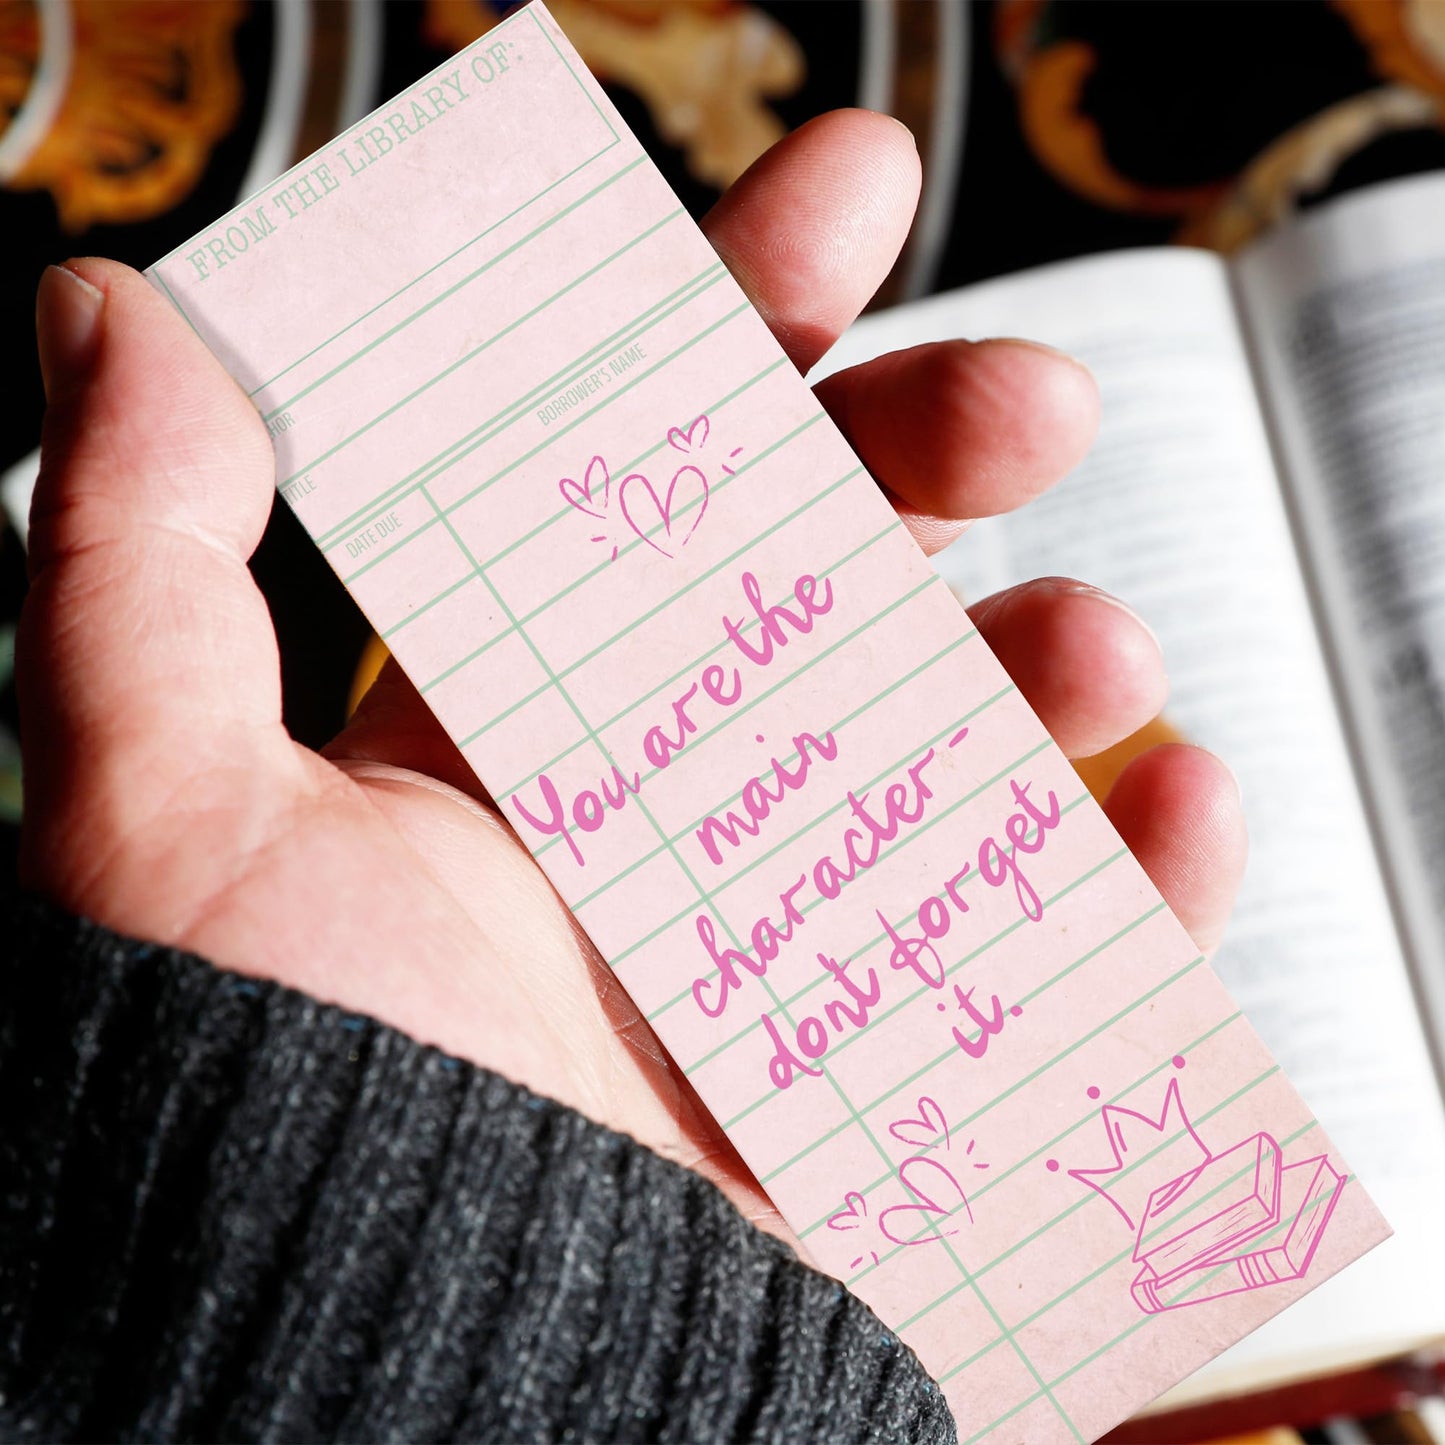 FROM THE LIBRARY OF:
HOR
TITLE
DATE DUE
BORROWER'S NAME
You are the
main
character -
dont forget
it.